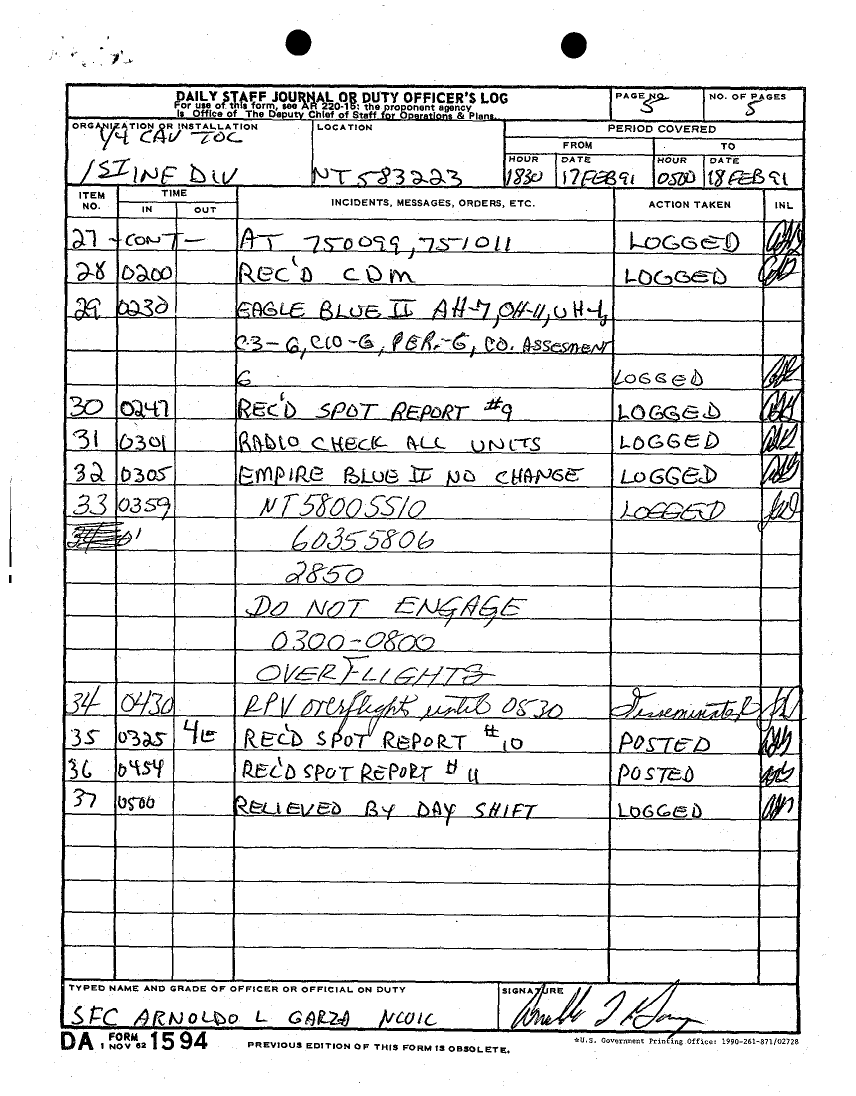 DAILY STAFF JOURNAL OR DUTY OFFICER'S LOG
For use of this form, see AR 220-15; the proponent agency
is Office of The Deputy Chief of Staff for Operations & Plans.
PAGE NO. 5
NO. OF PAGES 5
ORGANIZATION OR INSTALLATION
1/4 CAV TOC
1ST INF DIV
LOCATION
NT 583223
PERIOD COVERED
FROM TO
HOUR DATE HOUR DATE
1830 17 FEB 91 0500 18 FEB 91
ITEM NO. TIME INCIDENTS, MESSAGES, ORDERS, ETC. ACTION TAKEN INL
IN OUT
27 -CONT- AT 750099, 751011 LOGGED
28 0200 REC'D CDM LOGGED
29 0230 EAGLE BLUE II AH-7, OH-11, UH-1,
C3-G, C10-G, PER.-G, CO. ASSESMENT
G LOGGED
30 0247 REC'D SPOT REPORT #9 LOGGED
31 0301 RADIO CHECK ALL UNITS LOGGED
32 0305 EMPIRE BLUE II NO CHANGE LOGGED
33 0359 NT58005510 LOGGED
60355806
2850
DO NOT ENGAGE
0300-0800
OVERFLIGHTS
34 0430 RPV overflight until 0530 Disseminated
35 0325 REC'D SPOT REPORT #10 POSTED
36 0454 REC'D SPOT REPORT #11 POSTED
37 0500 RELIEVED BY DAY SHIFT LOGGED
TYPED NAME AND GRADE OF OFFICER OR OFFICIAL ON DUTY
SFC ARNOLDO L GARZA NCOIC
SIGNATURE
DA FORM 1 NOV 62 1594
PREVIOUS EDITION OF THIS FORM IS OBSOLETE.
*U.S. Government Printing Office: 1990-261-871/02728